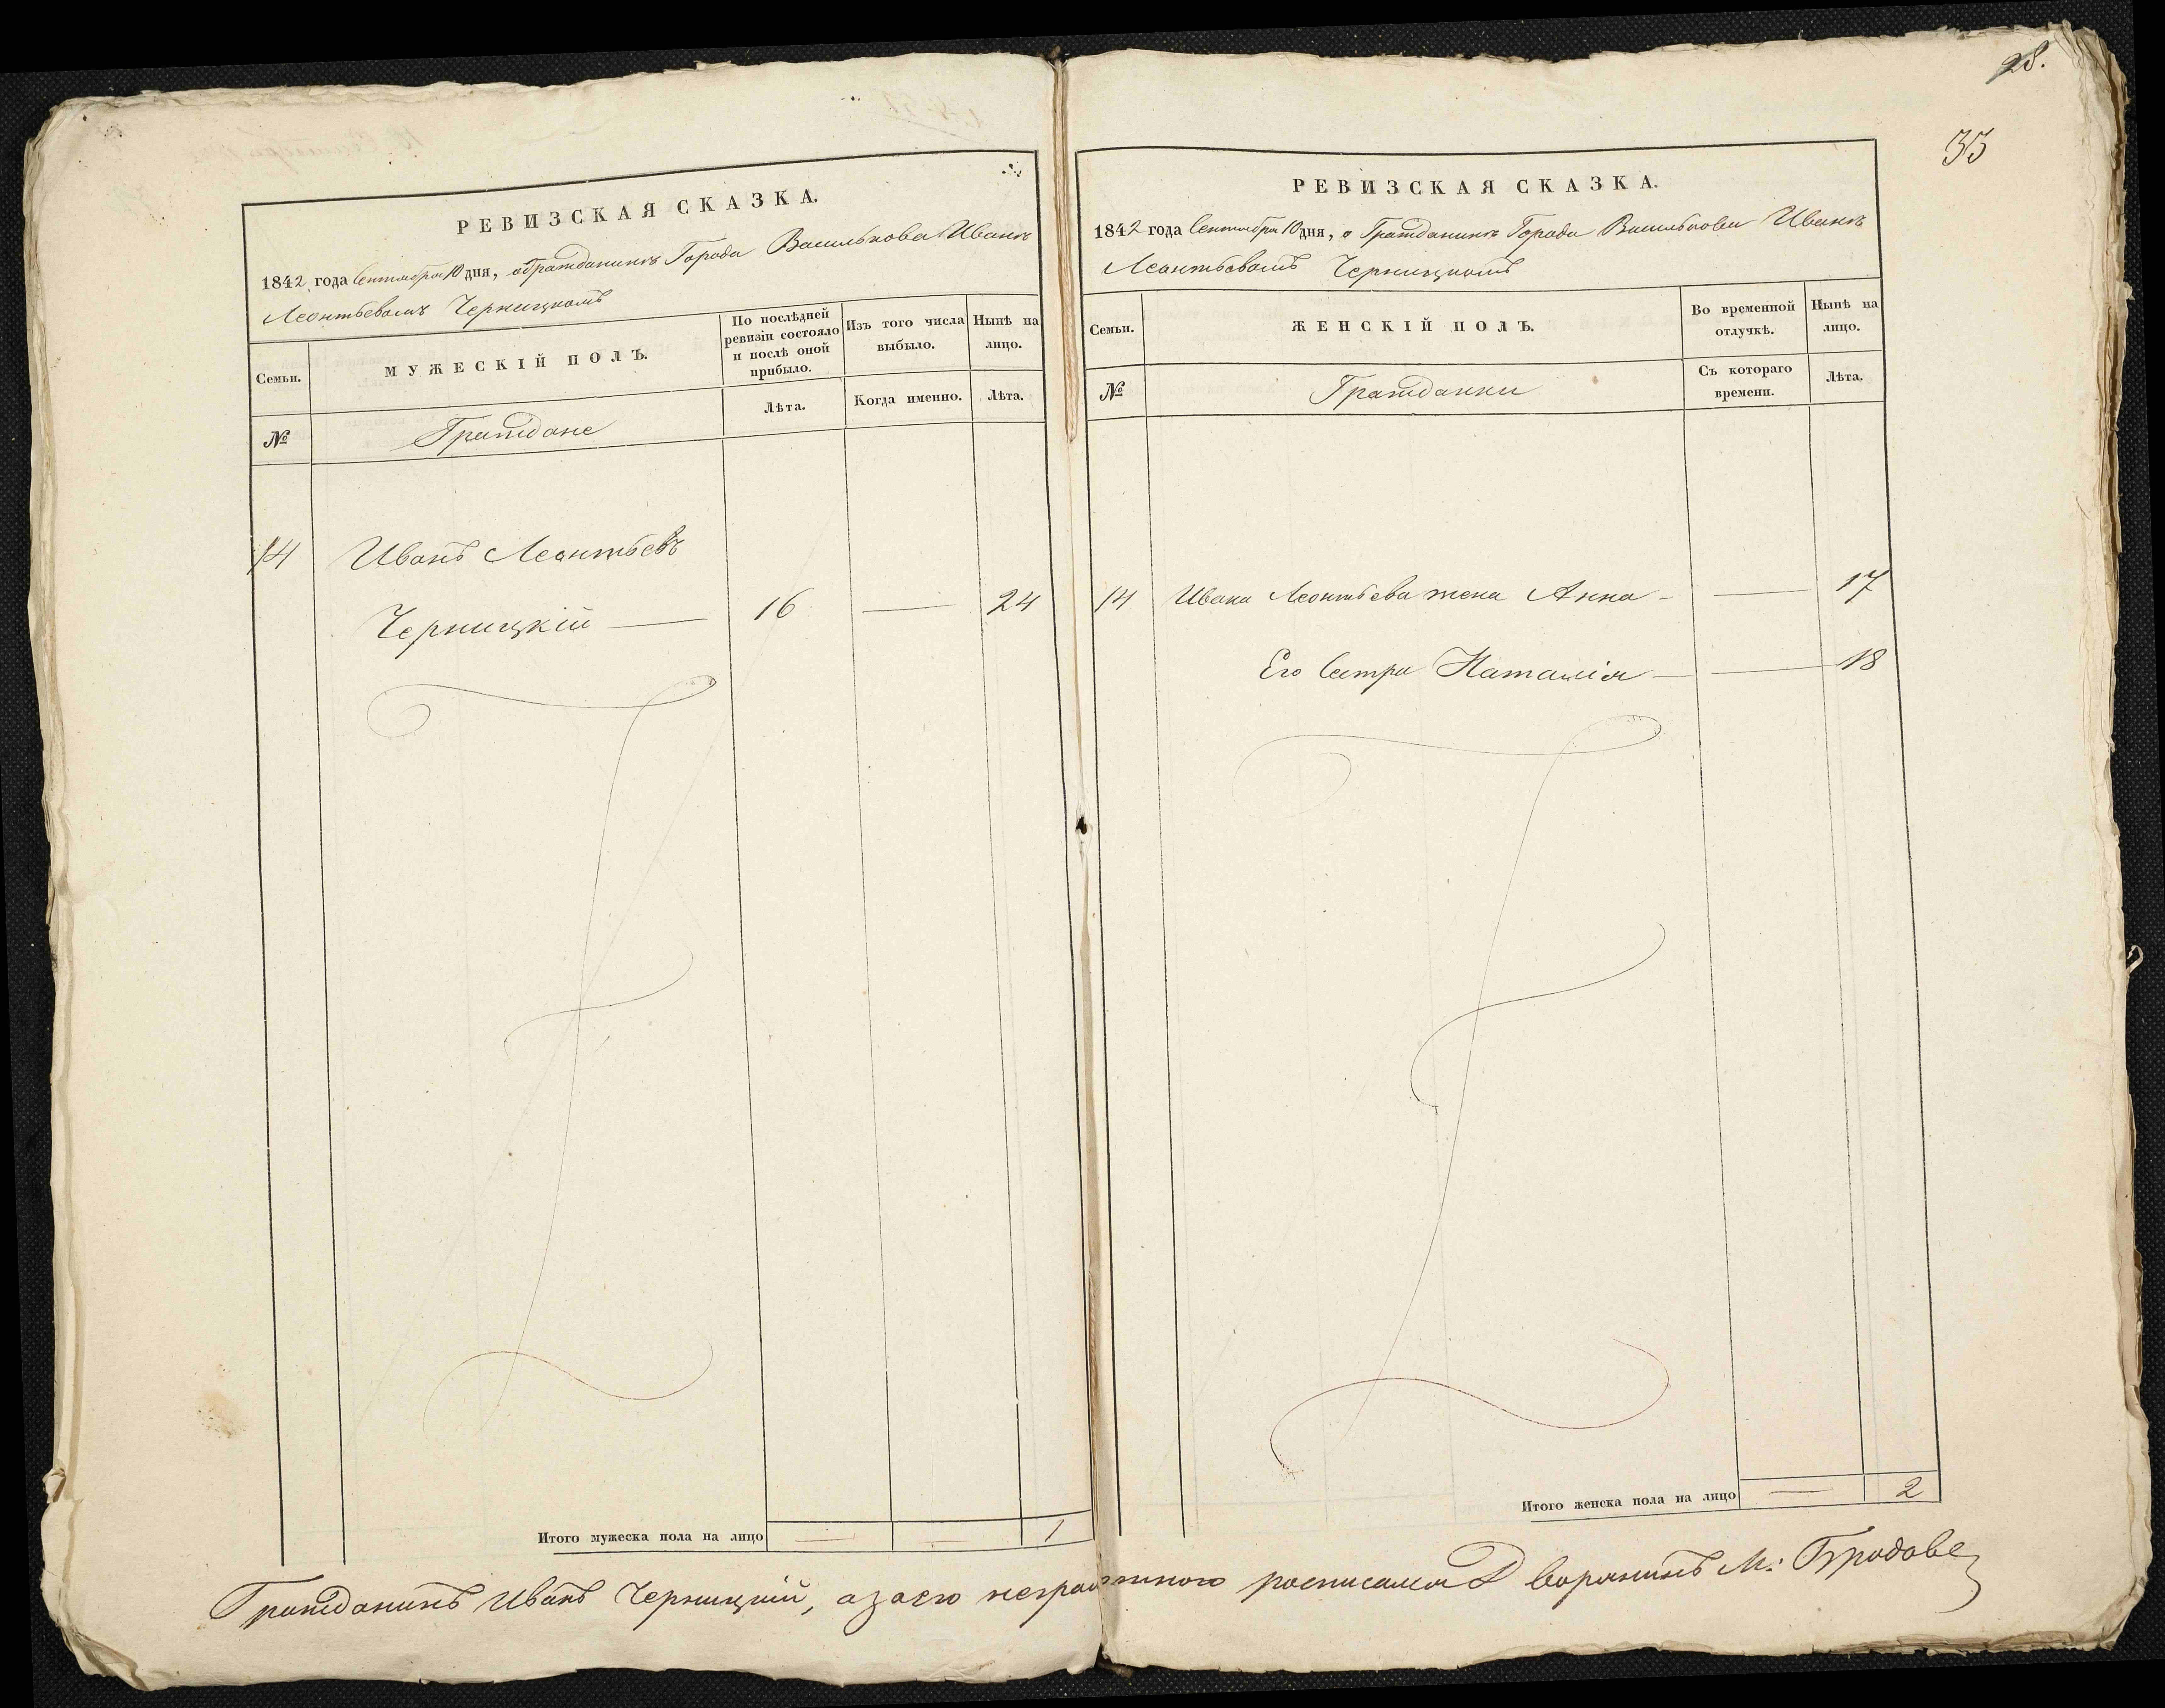 РЕВИЗСКАЯ СКАЗКА.
1842 года Сентября 10 дня, о Гражданинѣ Города Василькова Иванѣ
Леонтьевомъ Черницкомъ
Семьи.
МУЖЕСКІЙ ПОЛЪ.
По послѣдней
ревизіи состояло
и послѣ оной
прибыло.
Изъ того числа
выбыло.
Нынѣ на
лицо.
№
Граждане
Лѣта.
Когда именно.
Лѣта.
14 Иванъ Леонтьевъ
Черницкій — 16 — 24
Итого мужеска пола на лицо — — 1
28.
35
РЕВИЗСКАЯ СКАЗКА.
1842 года Сентября 10 дня, о Гражданинѣ Города Василькова Иванѣ
Леонтьевомъ Черницкомъ
Семьи.
ЖЕНСКІЙ ПОЛЪ.
Во временной
отлучкѣ.
Нынѣ на
лицо.
№
Гражданки
Съ котораго
времени.
Лѣта.
14 Ивана Леонтьева жена Анна — — 17
Его Сестра Наталія — — 18
Итого женска пола на лицо — 2
Гражданинъ Иванъ Черницкій, а за его неграмотного росписался Дворянинъ М: